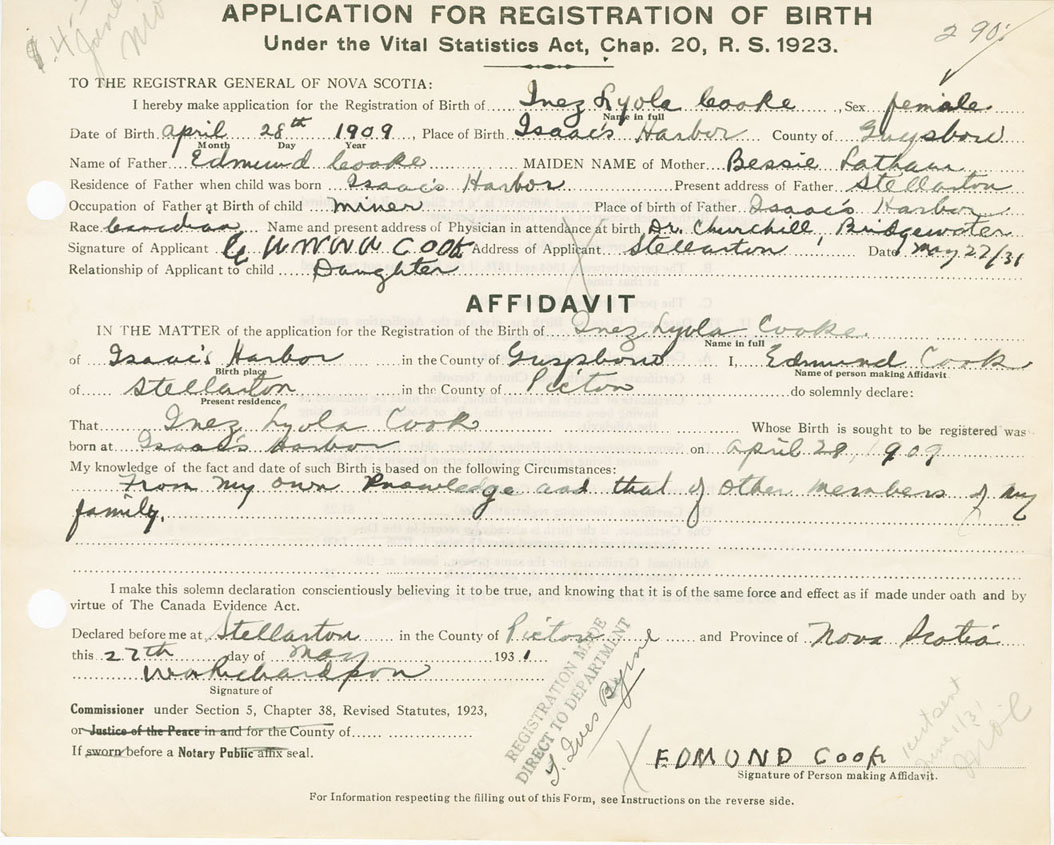 APPLICATION FOR REGISTRATION OF BIRTH
Under the Vital Statistics Act, Chap. 20, R. S. 1923.
290
TO THE REGISTRAR GENERAL OF NOVA SCOTIA:
I hereby make application for the Registration of Birth of Inez Lyola Cooke, Sex female
Name in full
Date of Birth April 28th 1909, Place of Birth Isaac's Harbor County of Guysboro
Month Day Year
Name of Father Edmund Cooke MAIDEN NAME of Mother Bessie Latham
Residence of Father when child was born Isaac's Harbor Present address of Father Stellarton
Occupation of Father at Birth of child miner Place of birth of Father Isaac's Harbor
Race Canadian Name and present address of Physician in attendance at birth Dr. Churchill, Bridgewater
Signature of Applicant COOK Address of Applicant Stellarton Date May 27/31
Relationship of Applicant to child Daughter
AFFIDAVIT
IN THE MATTER of the application for the Registration of the Birth of Inez Lyola Cooke
Name in full
of Isaac's Harbor in the County of Guysboro I, Edmund Cook
Birth place Name of person making Affidavit
of Stellarton in the County of Pictou do solemnly declare:
Present residence
That Inez Lyola Cook Whose Birth is sought to be registered was
born at Isaac's Harbor on April 28, 1909
My knowledge of the fact and date of such Birth is based on the following Circumstances:
From my own knowledge and that of other members of my
family.
I make this solemn declaration conscientiously believing it to be true, and knowing that it is of the same force and effect as if made under oath and by
virtue of The Canada Evidence Act.
Declared before me at Stellarton in the County of Pictou and Province of Nova Scotia
this 27th day of May 1931
Richardson
Signature of
Commissioner under Section 5, Chapter 38, Revised Statutes, 1923,
or Justice of the Peace in and for the County of
If sworn before a Notary Public affix seal.
REGISTRATION MADE
DIRECT TO DEPARTMENT
Byrne
EDMUND COOK
Signature of Person making Affidavit.
For Information respecting the filling out of this Form, see Instructions on the reverse side.